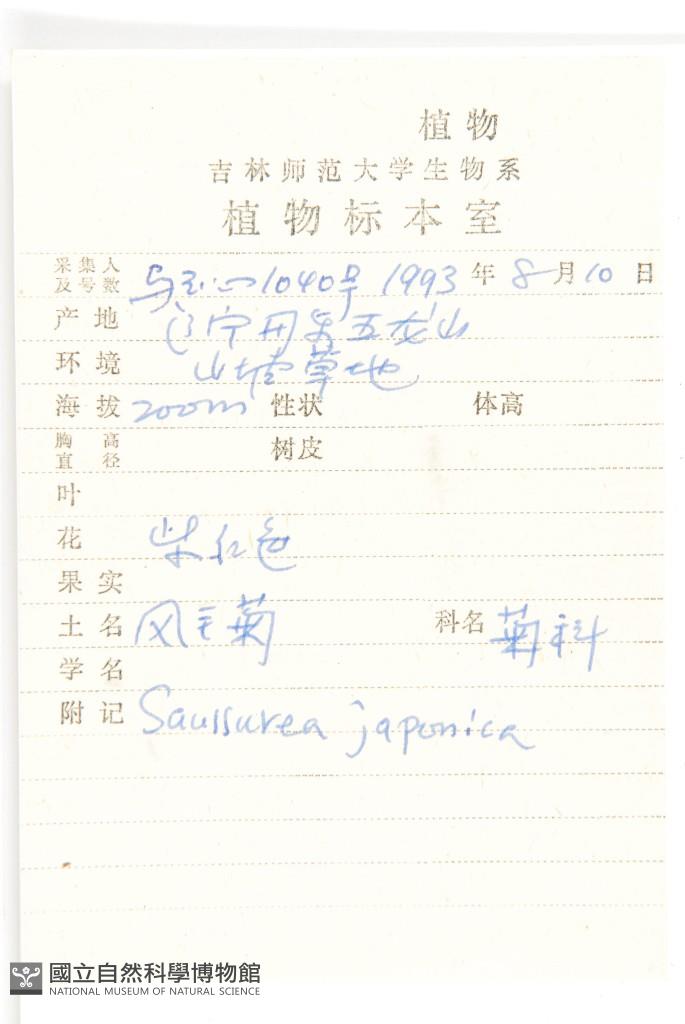 植物
吉林师范大学生物系
植物标本室
采集人及号数 1040号 1993年8月10日
产地 辽宁丹东五龙山
环境 山坡草地
海拔 200m 性状 体高
胸高直径 树皮
叶
花 紫红色
果实
土名 风毛菊 科名 菊科
学名
附记 Saussurea japonica
國立自然科學博物館
NATIONAL MUSEUM OF NATURAL SCIENCE